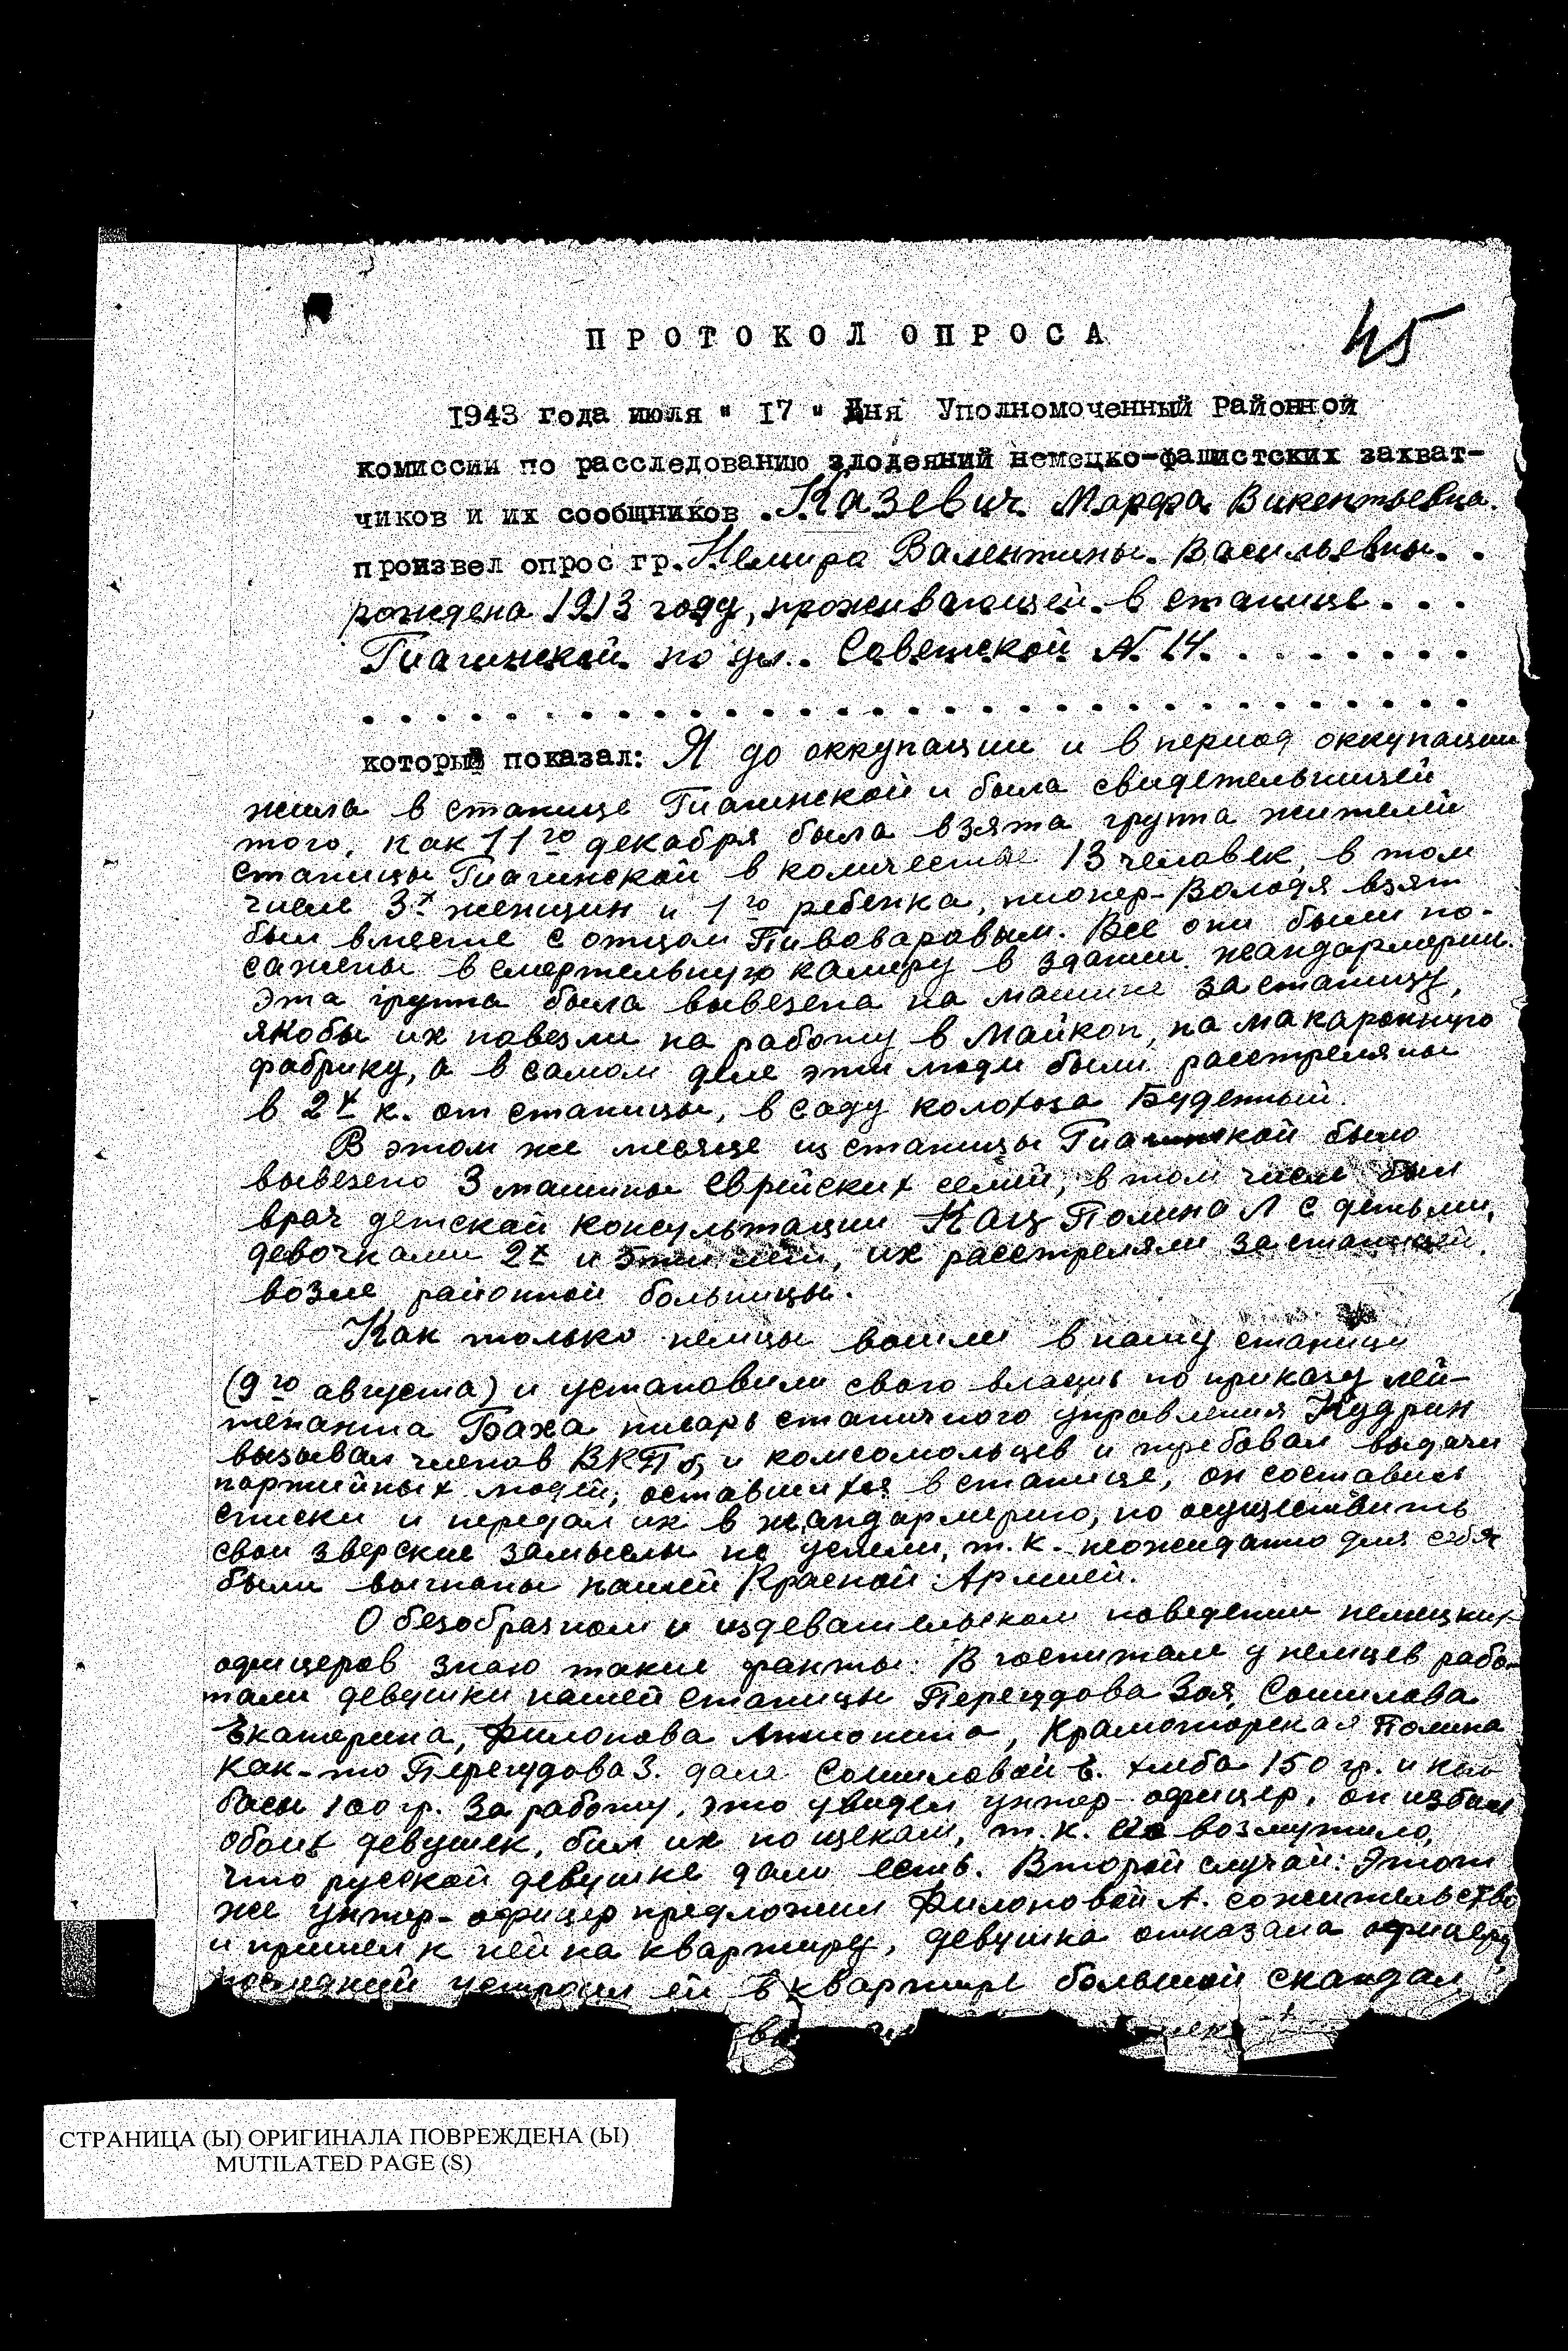 45
ПРОТОКОЛ ОПРОСА
1943 года июля " 17 " дня Уполномоченный Районной
комиссии по расследованию злодеяний немецко-фашистских захват-
чиков и их сообщников Казевич Марфа Викентьевна.
произвел опрос гр. Немира Валентины Васильевны. .
рождена 1913 году, проживающей в станице . . .
Гиагинской по ул. Советской N 14. . . . . . . . .
. . . . . . . . . . . . . . . . . . . . . . . . . . . . . . .
который показал: Я до оккупации и в период оккупации
жила в станице Гиагинской и была свидетельницей
того, как 11го декабря была взята группа жителей
станицы Гиагинской в количестве 13 человек, в том
числе 3х женщин и 1го ребенка, пионер-Володя взят
был вместе с отцом Пивоваровым. Все они были по-
сажены в смертельную камеру в здании жандармерии.
Эта группа была вывезена на машине за станицу,
якобы их повезли на работу в Майкоп, на макаронную
фабрику, а в самом деле эти люди были расстреляны
в 2х к. от станицы, в саду колхоза Буденный.
В этом же месяце из станицы Гиагинской было
вывезено 3 машины еврейских семей, в том числе был
врач детской консультации Кац Полина Л с детьми,
девочками 2х и 5ти лет, их расстреляли за станицей,
возле районной больницы.
Как только немцы вошли в нашу станицу
(9го августа) и установили свою власть по приказу лей-
тенанта Баха писарь станичного управления Кудрин
вызывал членов ВКПб, и комсомольцев и требовал выдачи
партийных людей, оставшихся в станице, он составил
списки и передал их в жандармерию, но осуществить
свои зверские замыслы не успели, т.к. неожиданно для себя
были выгнаны нашей Красной Армией.
О безобразном и издевательском поведении немецких
офицеров знаю такие факты: В госпитале у немцев рабо-
тали девушки нашей станицы Перегудова Зоя, Сошилова
Екатерина, Филонова Антонина, Краматорская Полина
Как-то Перегудова З. дала Сошиловой Е. хлеба 150 гр. и кол-
басы 100 гр. за работу, это увидел унтер-офицер, он избил
обоих девушек, бил их по щекам, т.к. его возмутило,
что русской девушке дали есть. Второй случай: Этот
же унтер-офицер предложил Филоновой А. сожительство
и пришел к ней на квартиру, девушка отказала офицеру,
последний устроил ей в квартире большой скандал,
СТРАНИЦА (Ы) ОРИГИНАЛА ПОВРЕЖДЕНА (Ы)
MUTILATED PAGE (S)